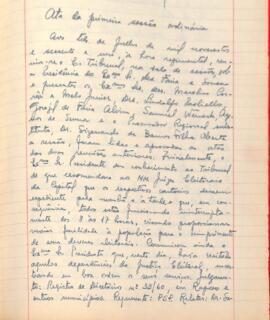 Ata da primeira sessão ordinária
Aos três de Julho de mil novecentos
e sessenta e um, à hora regimental, reu-
niu-se o Tribunal, na sala de sessões, sob
a Presidência do Exmo. Sr. Des. Faria e Sousa
e presentes os Exmos. Srs. Drs. Marcelino
Melo Júnior, Drs. Lindolfo
de Faria Alvim, Samuel
de Souza e o Procurador Regional subs-
tituto, Dr. Sizenando de Barros Filho. Aberta
a sessão, foram lidas e aprovadas as atas
das duas reuniões anteriores. Inicialmente, o
Exmo. Sr. Presidente deu conhecimento ao Tribunal
de que recomendara ao MM. Juizes Eleitorais
da Capital que os respectivos cartórios dessem
expediente pela manhã e à tarde e que, em con-
sequência, todos estão funcionando ininterrupta-
mente de 8 às 17 horas, visando proporcionar
maior facilidade à população para o cumprimento
de seus deveres eleitorais. Comunicou ainda o
Exmo. Sr. Presidente que, neste dia, havia visitado
aquelas dependências da Justiça Eleitoral, encon-
trando em boa ordem os seus serviços. Julgamen-
tos: Registro de Diretórios nº 33/60, em Raposos e
outros municípios. Requerente: P.D.C. Relator: Dr.